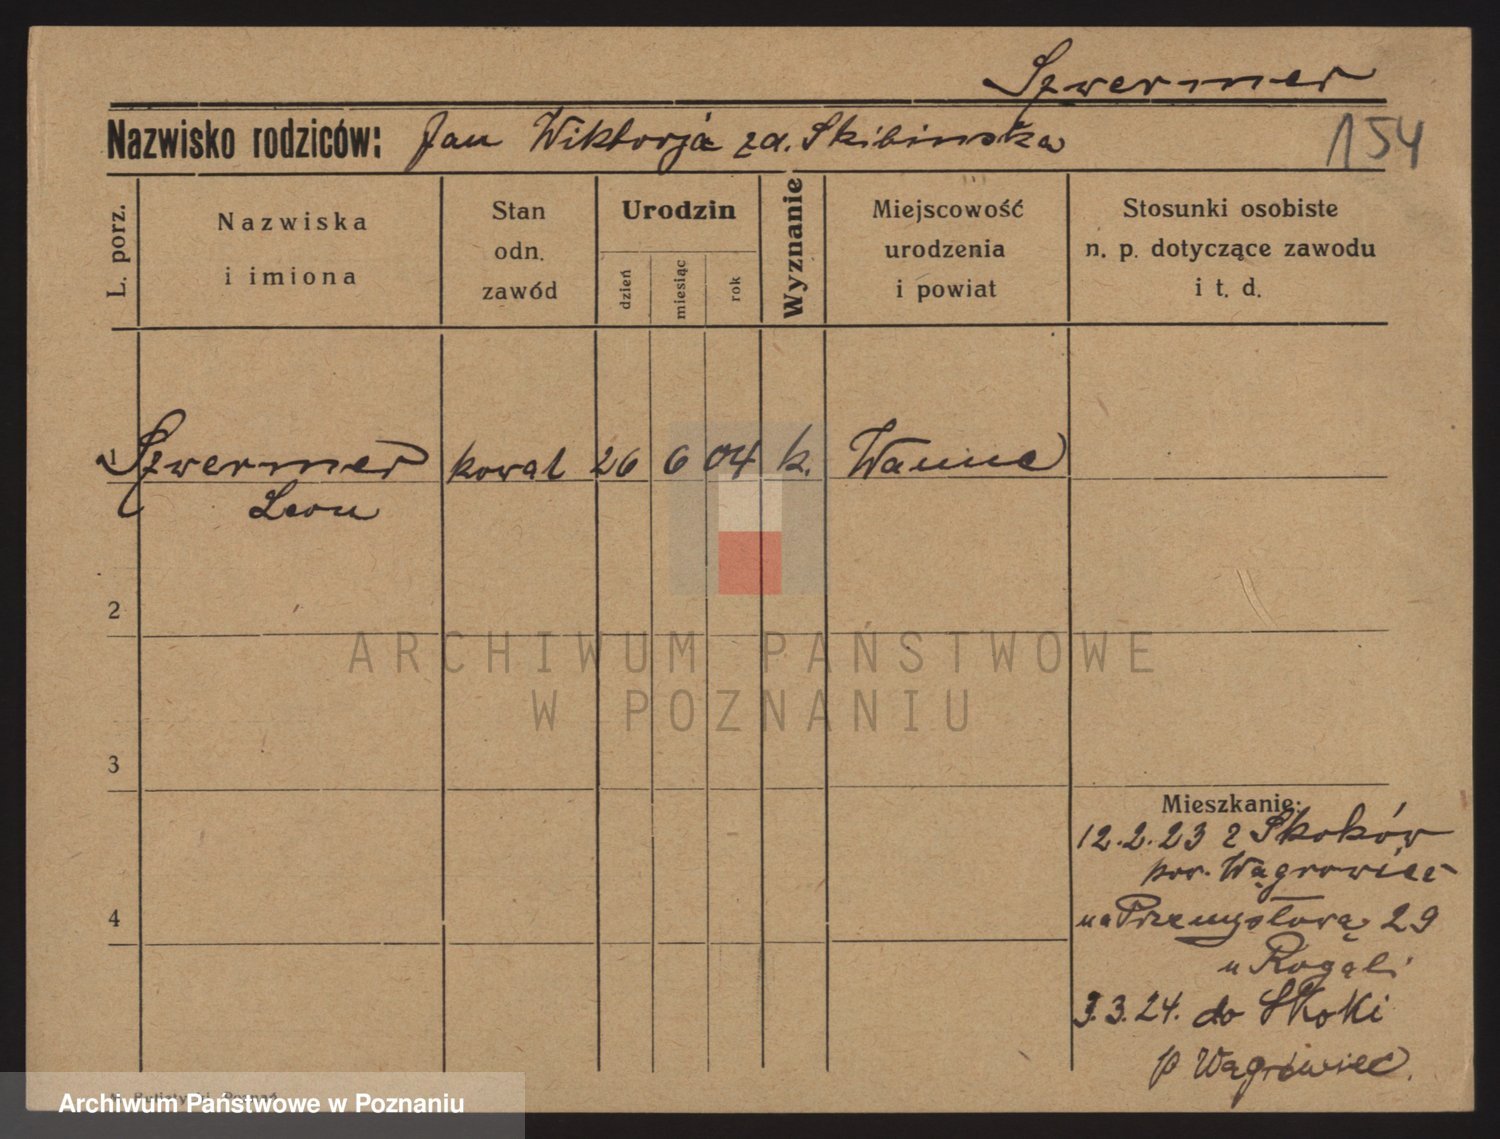 Szwermer
Nazwisko rodziców: Jan Wiktorja zd. Skibinska
154
L. porz.
Nazwiska
i imiona
Stan
odn.
zawód
Urodzin
dzień
miesiąc
rok
Wyznanie
Miejscowość
urodzenia
i powiat
Stosunki osobiste
n. p. dotyczące zawodu
i t. d.
1 Szwermer kowal 26 6 04 k. Wanne
Leon
2
ARCHIWUM PAŃSTWOWE
W POZNANIU
3
Mieszkanie:
12.2.23 z Skoków
pow. Wągrowiec
4
na Przemysłową 29
u Rogali
3.3.24. do Skoki
p Wągrowiec.
Poznań
Archiwum Państwowe w Poznaniu